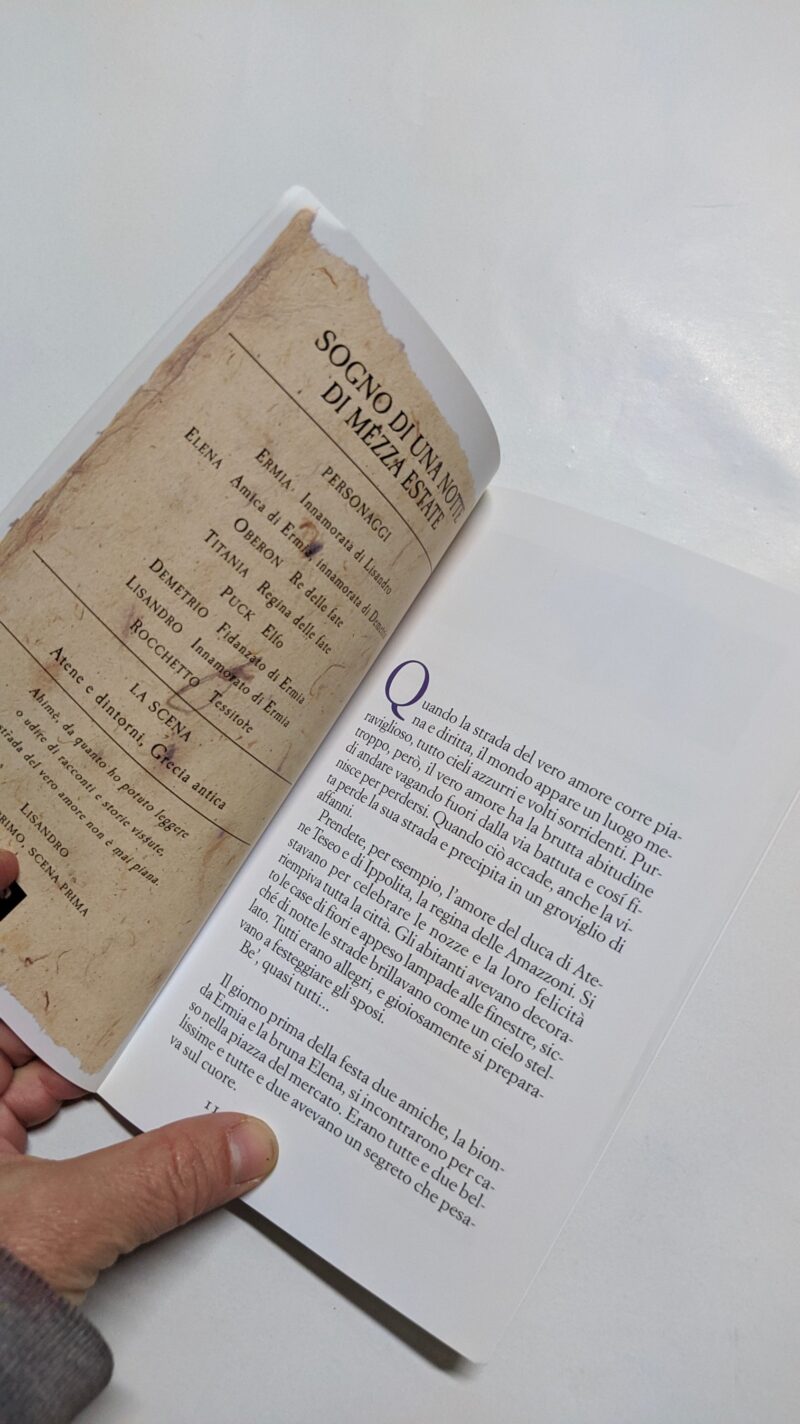 SOGNO DI UNA NOTTE
DI MEZZA ESTATE
PERSONAGGI
ERMIA Innamorata di Lisandro
ELENA Amica di Ermia, innamorata di Demetrio
OBERON Re delle fate
TITANIA Regina delle fate
PUCK Elfo
DEMETRIO Fidanzato di Ermia
LISANDRO Innamorato di Ermia
ROCCHETTO Tessitore
LA SCENA
Atene e dintorni, Grecia antica
Ahimè, da quanto ho potuto leggere
o udire di racconti e storie vissute,
strada del vero amore non è mai piana.
LISANDRO
PRIMO, SCENA PRIMA
Quando la strada del vero amore corre pia-
na e diritta, il mondo appare un luogo me-
raviglioso, tutto cieli azzurri e volti sorridenti. Pur-
troppo, però, il vero amore ha la brutta abitudine
di andare vagando fuori dalla via battuta e cosí fi-
nisce per perdersi. Quando ciò accade, anche la vi-
ta perde la sua strada e precipita in un groviglio di
affanni.
Prendete, per esempio, l'amore del duca di Ate-
ne Teseo e di Ippolita, la regina delle Amazzoni. Si
stavano per celebrare le nozze e la loro felicità
riempiva tutta la città. Gli abitanti avevano decora-
to le case di fiori e appeso lampade alle finestre, sic-
ché di notte le strade brillavano come un cielo stel-
lato. Tutti erano allegri, e gioiosamente si prepara-
vano a festeggiare gli sposi.
Be', quasi tutti...
Il giorno prima della festa due amiche, la bion-
da Ermia e la bruna Elena, si incontrarono per ca-
so nella piazza del mercato. Erano tutte e due bel-
lissime e tutte e due avevano un segreto che pesa-
va sul cuore.
11